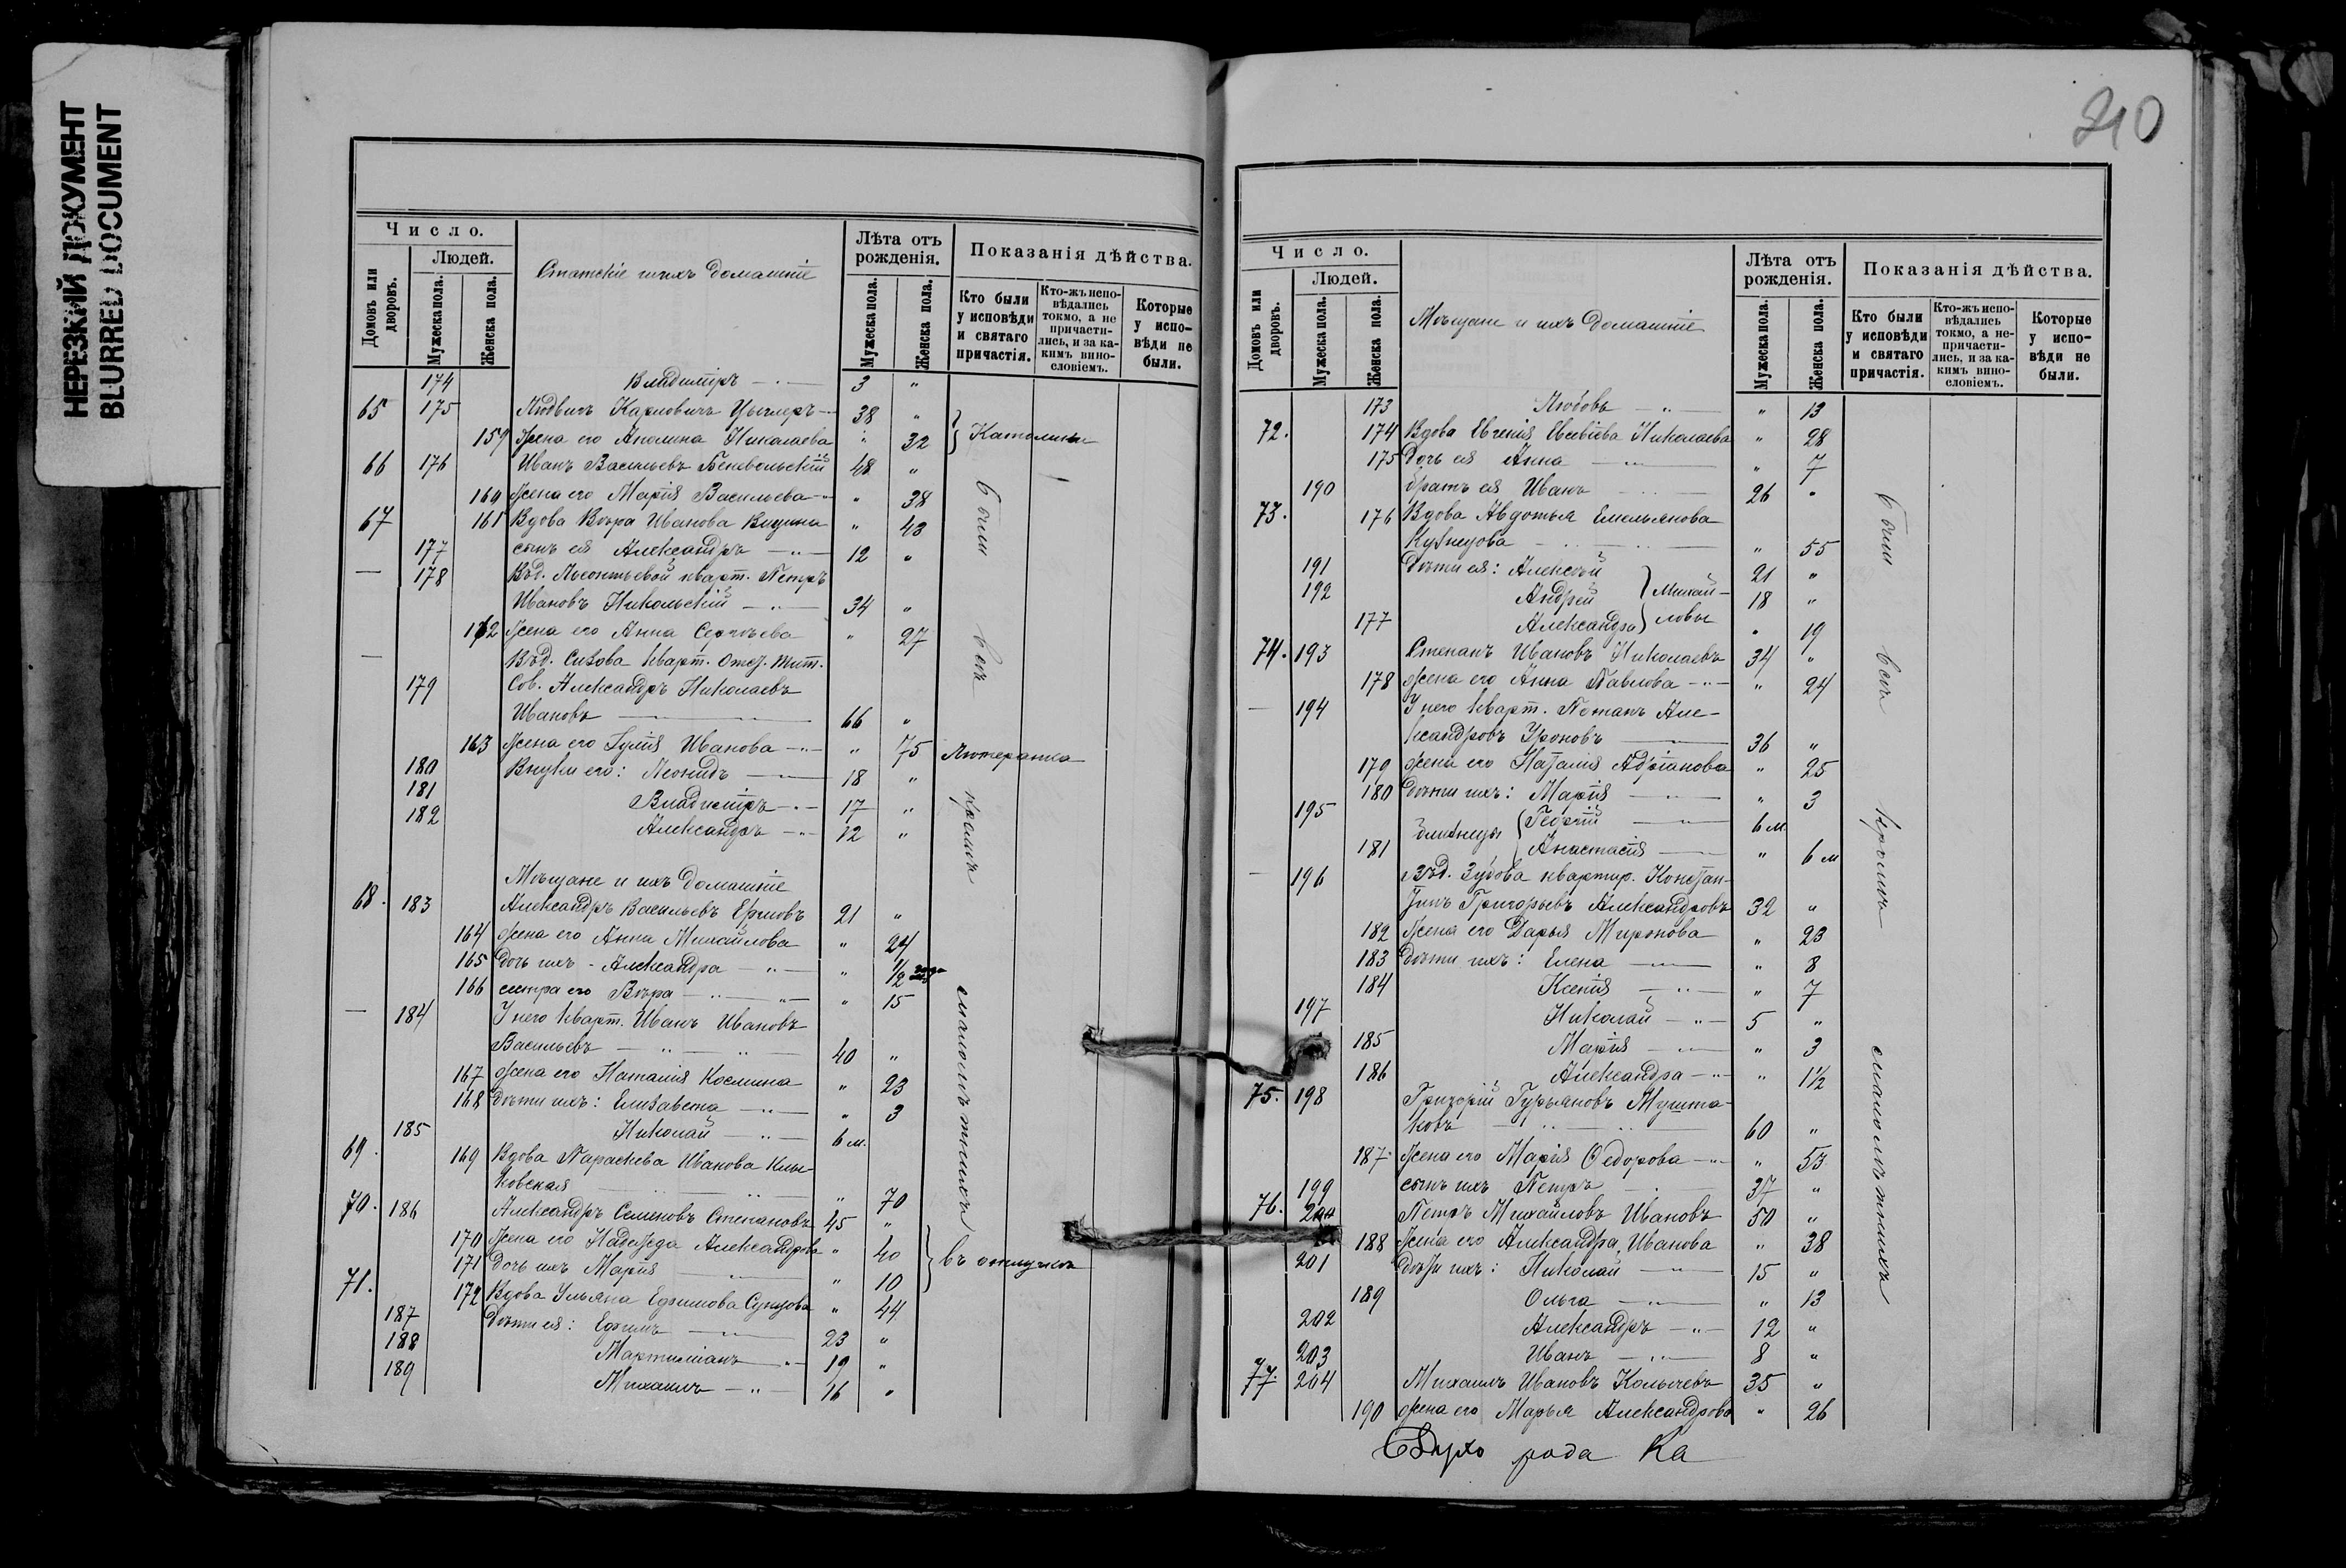 НЕРЕЗКИЙ ДОКУМЕНТ
BLURRED DOCUMENT
Число.
Домовъ или дворовъ.
Людей.
Мужеска пола.
Женска пола.
Статскіе и ихъ домашніе
Лѣта отъ рожденія.
Мужеска пола.
Женска пола.
Показанія дѣйства.
Кто были у исповѣди и святаго причастія.
Кто-жъ исповѣдались токмо, а не причастились, и за какимъ винословіемъ.
Которые у исповѣди не были.
174 Владиміръ — „ — 3 „
65 175 Людвигъ Карловичъ — 38 „
159 Жена его Анелина Николаева „ 32 } Католики
66 176 Иванъ Васильевъ 48 „
160 Жена его Марія Васильева — „ 38
67 161 Вдова Вѣра Иванова „ 43
177 сынъ ея Александръ — „ — 12 „
— 178 Въ д. Леонтьевой кварт. Петръ
Ивановъ Никольскій — „ — 34 „
162 Жена его Анна Сергѣева „ 27
— Въ д. Сизова кварт. Отст. Тит.
179 Сов. Александръ Николаевъ
Ивановъ — 66 „
163 Жена его Іулія Иванова — „ — „ 75 Лютеранка
180 Внуки его: Леонидъ — 18 „
181 Владиміръ — „ — 17 „
182 Александръ — „ 12 „
Мѣщане и ихъ домашніе
68. 183 Александръ Васильевъ Ершовъ 21 „
164 Жена его Анна Михайлова „ 24
165 Дочь ихъ - Александра „ — „ 1/2 года
166 сестра его Вѣра — „ — „ — „ 15
— 184 У него кварт. Иванъ Ивановъ
Васильевъ — „ — „ — 40 „
167 Жена его Наталія Космина „ 23
168 Дѣти ихъ: Елизавета — „ — „ 3
185 Николай — „ — 6 м.
69. 169 Вдова Параскева Иванова
ковская „ 70
70. 186 Александръ Семеновъ Степановъ 45 „
170 Жена его Надежда Александрова „ 40 } въ отлучкѣ
171 Дочь ихъ Марія „ 10
71. 172 Вдова Ульяна Ефимова „ 44
187 Дѣти ея: Ефимъ — „ 23 „
188 Мартиніанъ „ 19 „
189 Михаилъ — „ — 16 „
Были всѣ кромѣ малолѣтнихъ
210
Число.
Домовъ или дворовъ.
Людей.
Мужеска пола.
Женска пола.
Мѣщане и ихъ домашніе
Лѣта отъ рожденія.
Мужеска пола.
Женска пола.
Показанія дѣйства.
Кто были у исповѣди и святаго причастія.
Кто-жъ исповѣдались токмо, а не-причастились, и за какимъ винословіемъ.
Которые у исповѣди не были.
173 Любовь — „ — „ 13
72. 174 Вдова Евгенія Евсевіева Николаева „ 28
175 Дочь ея Анна „ 7
190 братъ ея Иванъ 26 „
73. 176 Вдова Авдотья Емельянова
Кузнецова „ 55
191 Дѣти ея: Алексѣй } Михай- 21 „
192 Андрей 18 „
177 Александра } ловы „ 19
74. 193 Степанъ Ивановъ Николаевъ 34 „
178 Жена его Анна Павлова — „ — „ 24
— 194 У него кварт. Потапъ Але-
ксандровъ 36 „
179 Жена его Наталія Адріанова „ 25
180 Дѣти ихъ: Марія „ 3
195 близнецы { Георгій 6 м.
181 Анастасія „ 6 м
— 196 Въ д. Зубова квартир. Констан-
тинъ Григорьевъ Александровъ 32 „
182 Жена его Дарья Миронова „ 23
183 Дѣти ихъ: Елена „ 8
184 Ксенія „ 7
197 Николай — „ — 5 „
185 Марія „ 3
186 Александра — „ „ 1½
75. 198 Григорій Гурьяновъ Мушта-
ковъ 60 „
187 Жена его Марія Ѳедорова — „ — „ 53
199 сынъ ихъ Петръ 37 „
76. 200 Петръ Михайловъ Ивановъ 50 „
188 Жена его Александра Иванова „ 38
201 Дѣти ихъ: Николай 15 „
189 Ольга „ 13
202 Александръ — „ — 12 „
203 Иванъ 8 „
77. 204 Михаилъ Ивановъ Колычевъ 35 „
190 Жена его Марья Александрова „ 26
Были всѣ кромѣ малолѣтнихъ
рода Ка